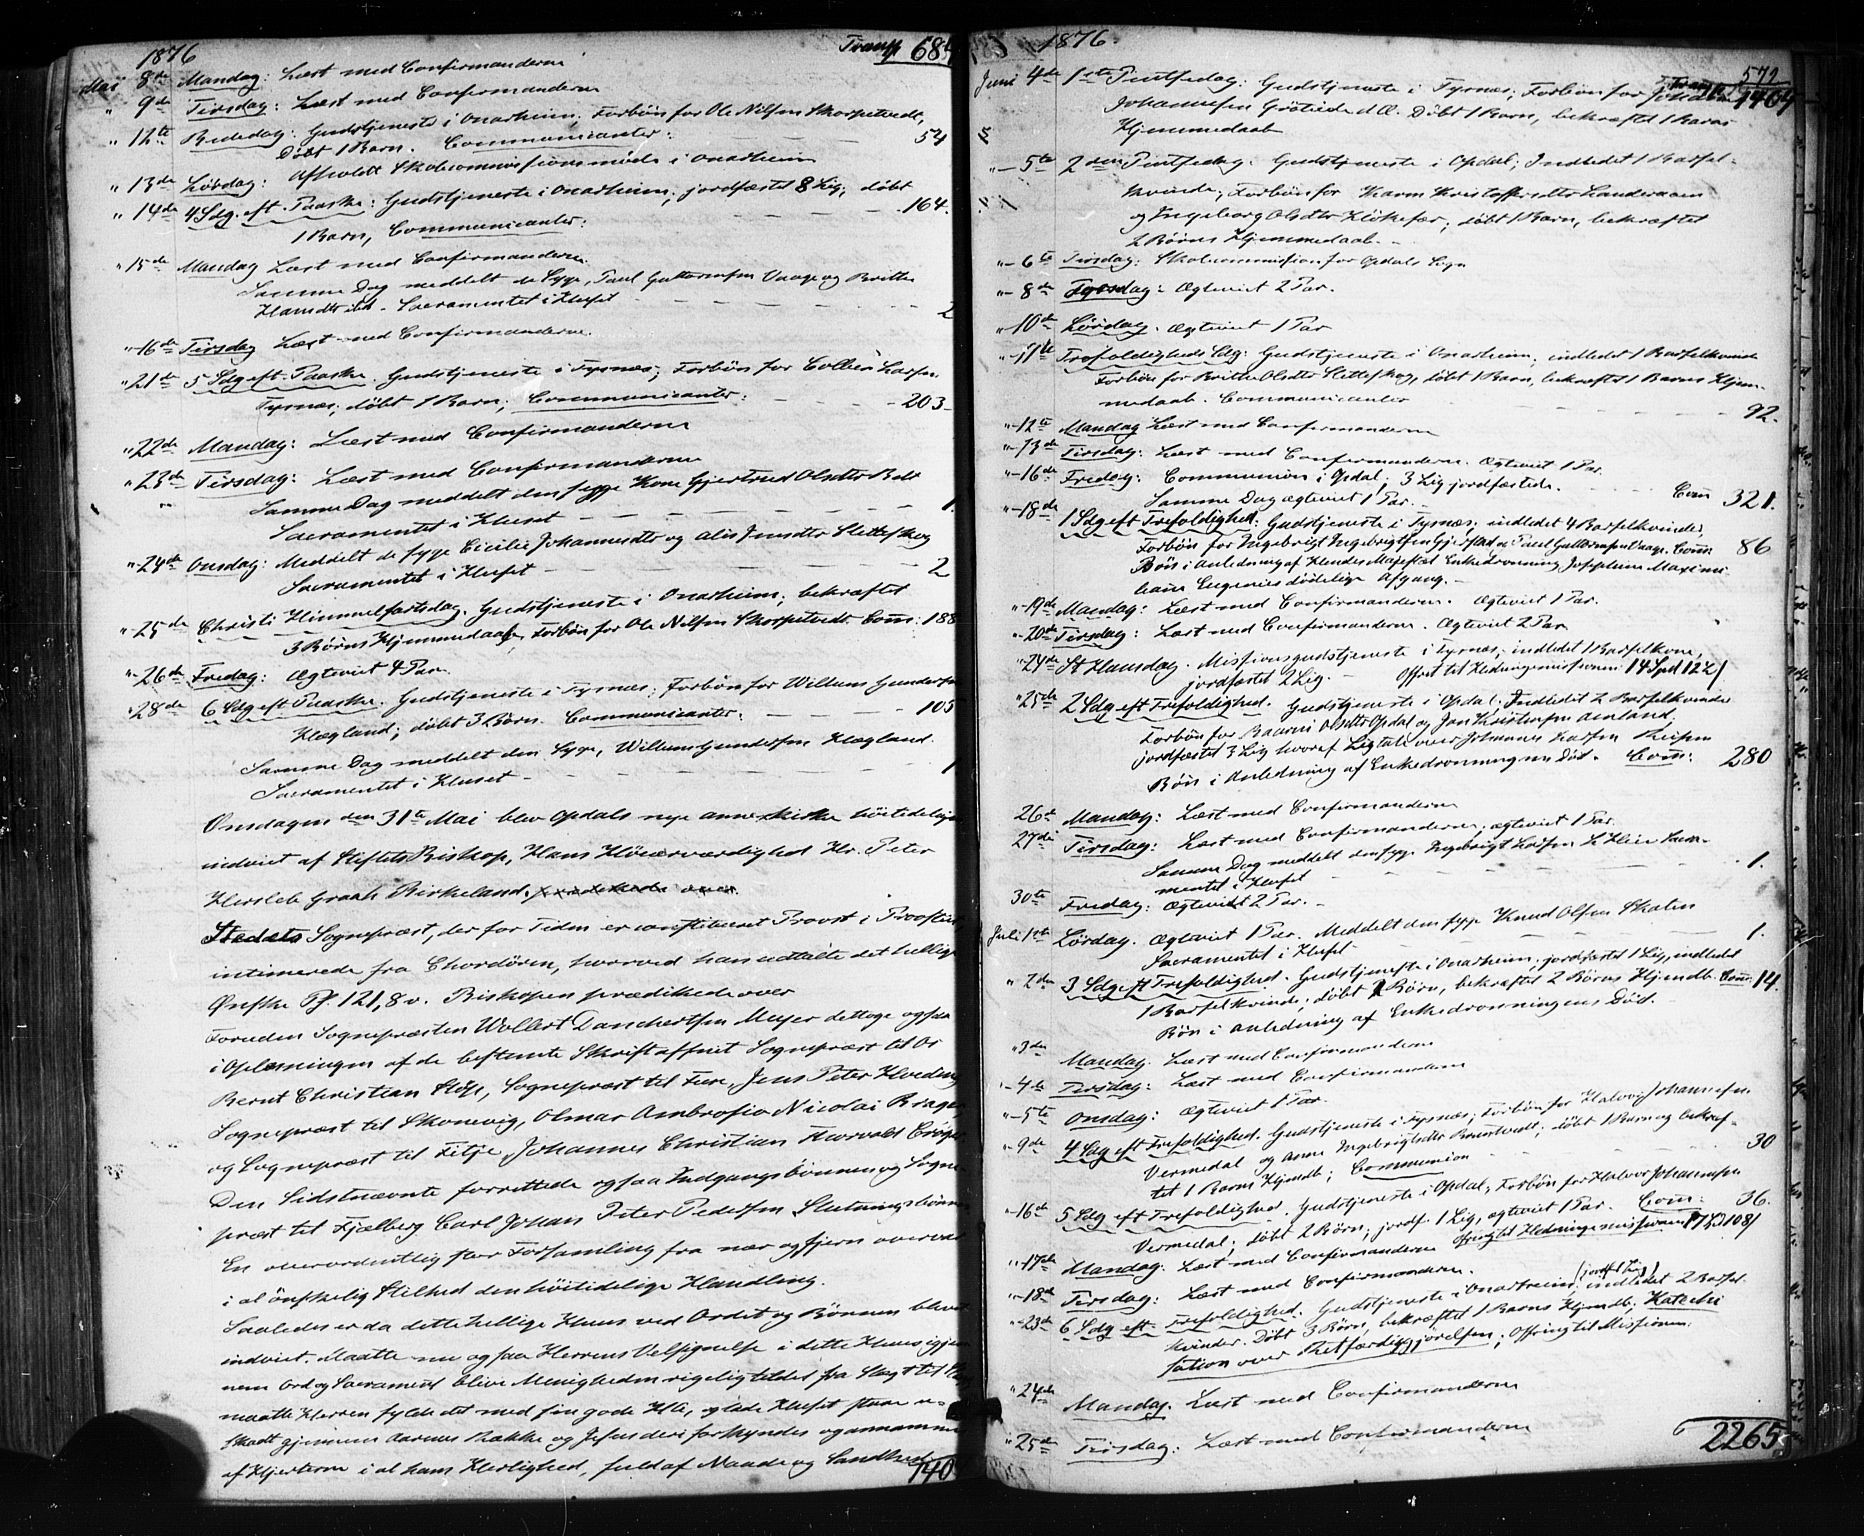 1876 Transp 68
Mai 8de Mandag: Læst med Confirmanderne
" 9de Tirsdag: Læst med Confirmanderne
" 12te Bededag: Gudstjeneste i Onarheim. Forbøn for Ole Nilsen Skorpetvedt,
Døbt 1 Barn. Communicanter: 54
" 13de Løbdag: Afholdt Skolecommissionsmøde i Onarheim
" 14de 4 Sdg. eft. Paaske: Gudstjeneste i Onarheim; jordfæstet 8 Lig; døbt
1 Barn, Communicanter: 164.
" 15de Mandag Læst med Confirmanderne.
Samme Dag meddelt de syge, Paul Guttormsen Vaage og Britte
Hansdtr ibd. Sacramentet i Huset 2
" 16de Tirsdag Læst med Confirmanderne.
" 21te 5 Sdg eft. Paaske. Gudstjeneste i Tysnæs; Forbøn for Larsen
Tysnæs; døbt 1 Barn; Communicanter: 203
" 22de Mandag: Læst med Confirmanderne
" 23de Tirsdag: Læst med Confirmanderne
Samme Dag meddelt den syge Kone Gjertrud Olsdtr
Sacramentet i Huset 1.
" 24de Onsdag: Meddelt de syge Cicilie Johannesdtr og Alis Jensdtr Sletteskog
Sacramentet i Huset 2
" 25de Christi Himmelfartsdag. Gudstjeneste i Onarheim; bekræftet
3 Børns Hjemmedaab, Forbøn for Ole Nilsen Skorpetvedt Com: 188
" 26de Fredag: Ægteviet 4 Par.
" 28de 6 Sdg eft Paaske. Gudstjeneste i Tysnæs; Forbøn for Willum Gundersen
Hægland; døbt 3 Børn. Communicanter: 105
Samme Dag meddelt den Syge, Willum Gundersen Hægland.
Sacramentet i Huset 1
Onsdagen den 31te Mai blev Opdals nye annexkirke høitidelig
indviet af Stiftets Biskop, Hans Høiærværdighed Hr. Peter
Hersleb Graah Birkeland.
Stedets Sognepræst, der for Tiden er constitueret Provst i Provstiet
intimerede fra Chordøren, hvorved han udtalte det hellige
Ønske Ps. 121,8 v. Biskopen prædikede over
Foruden Sognepræsten Wollert Danchertsen Meyer deltoge ogsaa
i Oplæsningen af de bestemte Skriftafsnit Sognepræst til Os
Bernt Christian Støp, Sognepræst til Fuse, Jens Peter Hveding
Sognepræst til Skonevig, Olmar Ambrosio Nicolai
og Sognepræst til Fitje, Johannes Christian Harvald
Den Sidstnævnte forrettede ogsaa Indgangsbønnen og Sogne
præst til Fjælberg Carl Johan Peter Petersen Slutningsbønnen
En overordentlig stor Forsamling fra nær og fjern overvar
i al ønskelig Stilhed den høitidelige Handling.
Saaledes er da dette hellige Huus ved Ordet og Bønnen blevet
indviet. Maatte nu ogsaa Herrens Velsignelse i dette Huus igjen
nem Ord og Sacrament blive Menigheden rigelig tildelt fra Slægt til
maatte Herren fylde det med sin gode Hl. A., og lade Huset staae u-
skadt gjennem Aarenes Række og Jesu deri forkyndes og annammes
af Hjerterne i al hans Herlighed, fuld af Naade og Sandhed
140
1876. 572
Transp. 1404
Juni 4de 1ste Pintsedag: Gudstjeneste i Tysnæs, Forbøn for Johan
Johannesen d.Æ. Døbt 1 Barn, bekræftet 1 Barns
Hjemmedaab
" 5te 2den Pintsedag: Gudstjeneste i Opdal; Indledet 1 Barsel-
kvinde; Forbøn for Karen Kristoffersdtr
og Ingeborg Olsdtr; døbt 1 Barn, bekræftet
2 Børns Hjemmedaab.
" 6te Tirsdag: Skolecommission for Opdals Sogn
" 8de Torsdag: Ægteviet 2 Par.
" 10de Lørdag. Ægteviet 1 Par
" 11te Trefoldigheds Sdg: Gudstjeneste i Onarheim; indledet 1 Barselkvinde
Forbøn for Britte Olsdtr Sletteskog, døbt 1 Barn, bekræftet 1 Barns Hjem-
medaab. Communicanter 92.
" 12te Mandag Læst med Confirmanderne
" 13de Tirsdag: Læst med Confirmanderne. Ægteviet 1 Par.
" 16de Fredag: Communion i Opdal; 3 Lig jordfæstede. Com 321.
Samme Dag ægteviet 1 Par.
" 18de 1 Sdg eft Trefoldighed: Gudstjeneste i Tysnæs; indledet 4 Barselkvinder,
Forbøn for Ingebrigt Ingebrigtsen Gjerstad og Paul Guttormsen Vaage. Com 86
Bøn i Anledning af Hendes Majestæt Enkedronning Josephine Maximi-
liane Eugenies dødelige Afgang.
" 19de Mandag: Læst med Confirmanderne. Ægteviet 1 Par.
" 20de Tirsdag: Læst med Confirmanderne. Ægteviet 2 Par
" 24de St Hansdag. Missionsgudstjeneste i Tysnæs; indledet 1 Barselkone,
jordfæstet 2 Lig. Offret til Hedningemissionen 14 Spd 12
" 25de 2 Sdg eft Trefoldighed. Gudstjeneste i Opdal; Indledet 2 Barselkvinder
Forbøn for Olsdtr Opdal og Jon Christensen Amland;
jordfæstet 3 Lig hvoraf Ligtale over Johannes Larsen
Bøn i Anledning af Enkedronningens Død. Com: 280
26de Mandag: Læst med Confirmanderne
27de Tirsdag: Læst med Confirmanderne, ægteviet 1 Par.
Samme Dag meddelt den syge Ingebrigt Larsen Sacra-
mentet i Huset 1.
30te Fredag: Ægteviet 2 Par.
Juli 1ste Lørdag. Ægteviet 1 Par. Meddelt den syge Knud Olsen Skaten
Sacramentet i Huset 1.
" 2den 3 Sdg eft Trefoldighed. Gudstjeneste i Onarheim; jordfæstet 1 Lig, indledet
1 Barselkvinde; døbt Børn, bekræftet 2 Børns Hjemdb. Com: 14.
Bøn i Anledning af Enkedronningens Død.
" 3de Mandag. Læst med Confirmanderne
" 4de Tirsdag: Læst med Confirmanderne
" 5te Onsdag: Ægteviet 1 Par.
" 9de 4 Sdg eft Trefoldighed. Gudstjeneste i Tysnæs; Forbøn for Halvor Johannesen
Vermedal og Anne Ingebrigtsdtr; døbt 1 Barn og bekræf-
tet 1 Barns Hjemdb; Communion 30
" 16de 5 Sdg eft Trefoldighed. Gudstjeneste i Opdal; Forbøn for Halvor Johannesen
Vermedal; døbt 2 Børn; jordf. 1 Lig, ægteviet 1 Par. Com: 36.
" 17de Mandag: Læst med Confirmanderne Offring til Hedningemissionen 17 108
" 18de Tirsdag: Læst med Confirmanderne.
" 23de 6 Sdg eft. Trefoldighed. Gudstjeneste i Onarheim; (jordfst Lig) indledet 2 Barsel-
kvinder. Døbt 3 Børn, bekræftet 1 Barns Hjemdb; Kateki-
sation over Retfærdiggjørelsen; Offring til Missionen.
" 24de Mandag. Læst med Confirmanderne
" 25de Tirsdag: Læst med Confirmanderne
2265